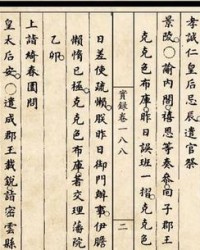 孝誠仁皇后忌辰遣官祭
景陵○諭內閣禧恩等奏參子郡王
克克色布庫昨日誤班一摺克克色
實錄卷一八八 二
日差使疏懶朕昨日御門辦事伊膽
懶惰已極克克色布庫著交理藩院
乙卯
上詣綺春園問
皇太后安○遣成郡王載銳詣密雲縣